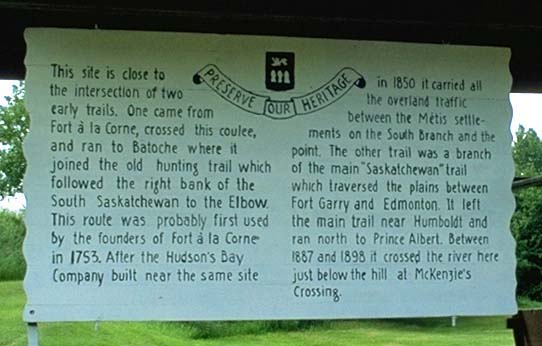 PRESERVE OUR HERITAGE
This site is close to
the intersection of two
early trails. One came from
Fort à la Corne, crossed this coulee,
and ran to Batoche where it
joined the old hunting trail which
followed the right bank of the
South Saskatchewan to the Elbow.
This route was probably first used
by the founders of Fort à la Corne
in 1753. After the Hudson's Bay
Company built near the same site
in 1850 it carried all
the overland traffic
between the Métis settle-
ments on the South Branch and the
point. The other trail was a branch
of the main "Saskatchewan" trail
which traversed the plains between
Fort Garry and Edmonton. It left
the main trail near Humboldt and
ran north to Prince Albert. Between
1887 and 1898 it crossed the river here
just below the hill at McKenzie's
Crossing.